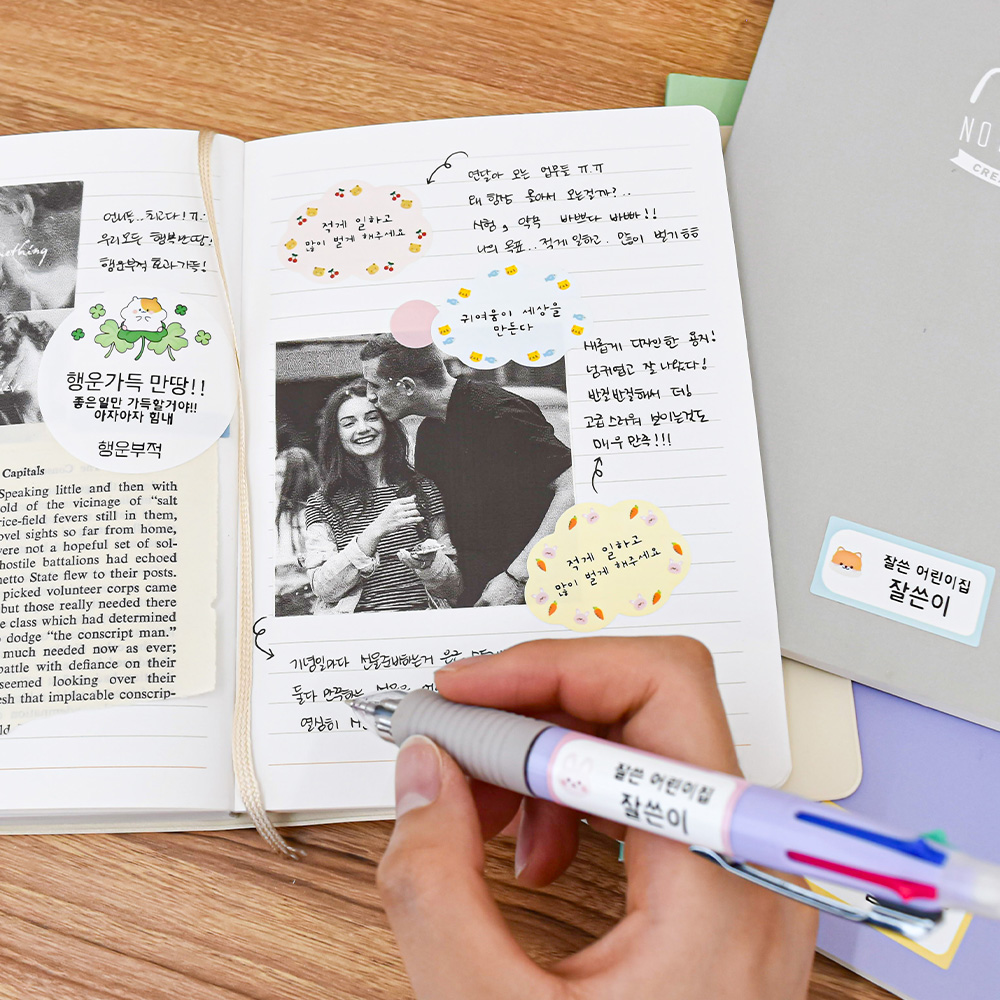 nothing
언니들..최고다!ㅠ.
우리모두 행복만땅!
행운부적 효과가득!
행운가득 만땅!!
좋은일만 가득할거야!!
아자아자 힘내
행운부적
Capitals
Speaking little and then with
old of the vicinage of “salt
rice-field fevers still in them,
novel sights so far from home,
were not a hopeful set of sol-
hostile battalions had echoed
netto State flew to their posts.
picked volunteer corps came
but those really needed there
e class which had determined
dodge “the conscript man.”
much needed now as ever;
battle with defiance on their
seemed looking over their
esh that implacable conscrip-
연달아 오는 업무들 ㅠ.ㅠ
왜 항상 몰아서 오는걸까?..
시험, 약속 바쁘다 바빠!!
나의 목표..적게 일하고. 많이 벌기ㅎㅎ
적게 일하고
많이 벌게 해주세요
귀여움이 세상을
만든다
새롭게 디자인한 용지!
넘귀엽고 잘 나왔다!
반질반질해서 더욱
고급스러워 보이는것도
매우 만족!!!
적게 일하고
많이 벌게 해주세요
기념일마다 선물준비하는거
둘다 만족하는 선물을
열심히
잘쓴 어린이집
잘쓴이
NO
CRE
잘쓴 어린이집
잘쓴이